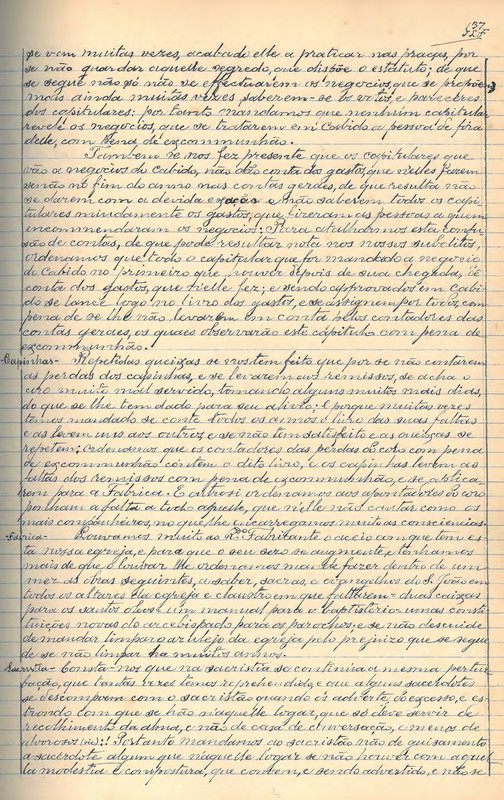 137
se vem muitas vezes, acabado elle a praticar nas praças, por
se não guardar aquelle segredo, que dispõe o estatuto; de que
se segue não só não se effectuarem os negocios, que se propõem
mais ainda muitas vezes saberem-se os votos, e pareceres
dos capitulares: por tanto mandamos que nenhum capitular
revele os negocios, que se tratarem em Cabido a pessoa de fora
delle, com pena de excommunhão.
Tambem se nos fez presente que os capitulares que
vão a negocios do Cabido, não dão conta dos gastos, que n'elles fazem
senão no fim do anno nas contas geraes, de que resulta não
se darem com a devida exação e não saberem todos os capi-
tulares miudamente os gastos, que fizeram as pessoas a quem
encommendaram os negocios: Para atalharmos esta confu-
são de contas, de que pode resultar nota nos nossos subditos,
ordenamos que todo o capitular que for mandado a negocio
do Cabido no primeiro que houver depois de sua chegada, dê
conta dos gastos, que n'elle fez; e sendo approvados em Cabi-
do se lance logo no livro dos gastos, e se assignem por todos, com
pena de se lhe não levarem em conta pelos contadores das
contas geraes, os quaes observarão este capitulo com pena de
excommunhão.
Capinhas- Repetidas queixas se nos tem feito que por se não contarem
as perdas dos capinhas, e se levarem os remissos, se acha o
coro muito mal servido, tomando alguns muitos mais dias,
do que se lhe tem dado para seu alivio: E porque muitas vezes
temos mandado se conte todos os annos o livro das suas faltas
e as levem uns aos outros e se não tem satisfeito e as queixas se
repetem; ordenamos que os contadores das perdas do coro com pena
de excommunhão contem o dito livro, e os capinhas levem as
faltas dos remissos com pena de excommunhão, e se applica-
rem para a Fabrica. E outrosi ordenamos aos apontadores do coro
ponham a falta a todo aquelle, que n'elle não cantar como os
mais companheiros, no que lhe encarregamos muito as consciencias.
Fabrica- Louvamos muito ao R.do Fabricante o aceio com que tem es-
ta nossa egreja, e para que o seu zelo se augmente, e tenhamos
mais de que o louvar lhe ordenamos mande fazer dentro de um
mez as obras seguintes, a saber, sacras, e evangelhos de S. João em
todos os altares da egreja e claustro em que faltarem - duas caixas
para os santos oleos - um manual para o baptisterio - umas consti-
tuições novas do arcebispado para os parochos; e se não descuide
de mandar limpar o azulejo da egreja pelo prejuizo que se segue
de se não limpar ha muitos annos.
Sacristia- Consta-nos que na sacristia se continua a mesma pertur-
bação, que tantas vezes temos reprehendido, e que alguns sacerdotes
se descompoem com o sacristão quando os adverte, do excesso, e es-
trondo com que se hão n'aquelle logar, que só deve servir de
recolhimento da alma, e não de casa de conversação, e menos de
alvorosos (sic)!! Portanto mandamos ao sacristão não dê guisamento
a sacerdote algum que n'aquelle logar se não houver com aquel-
la modestia e compostura, que convem, e sendo advertido, e não se